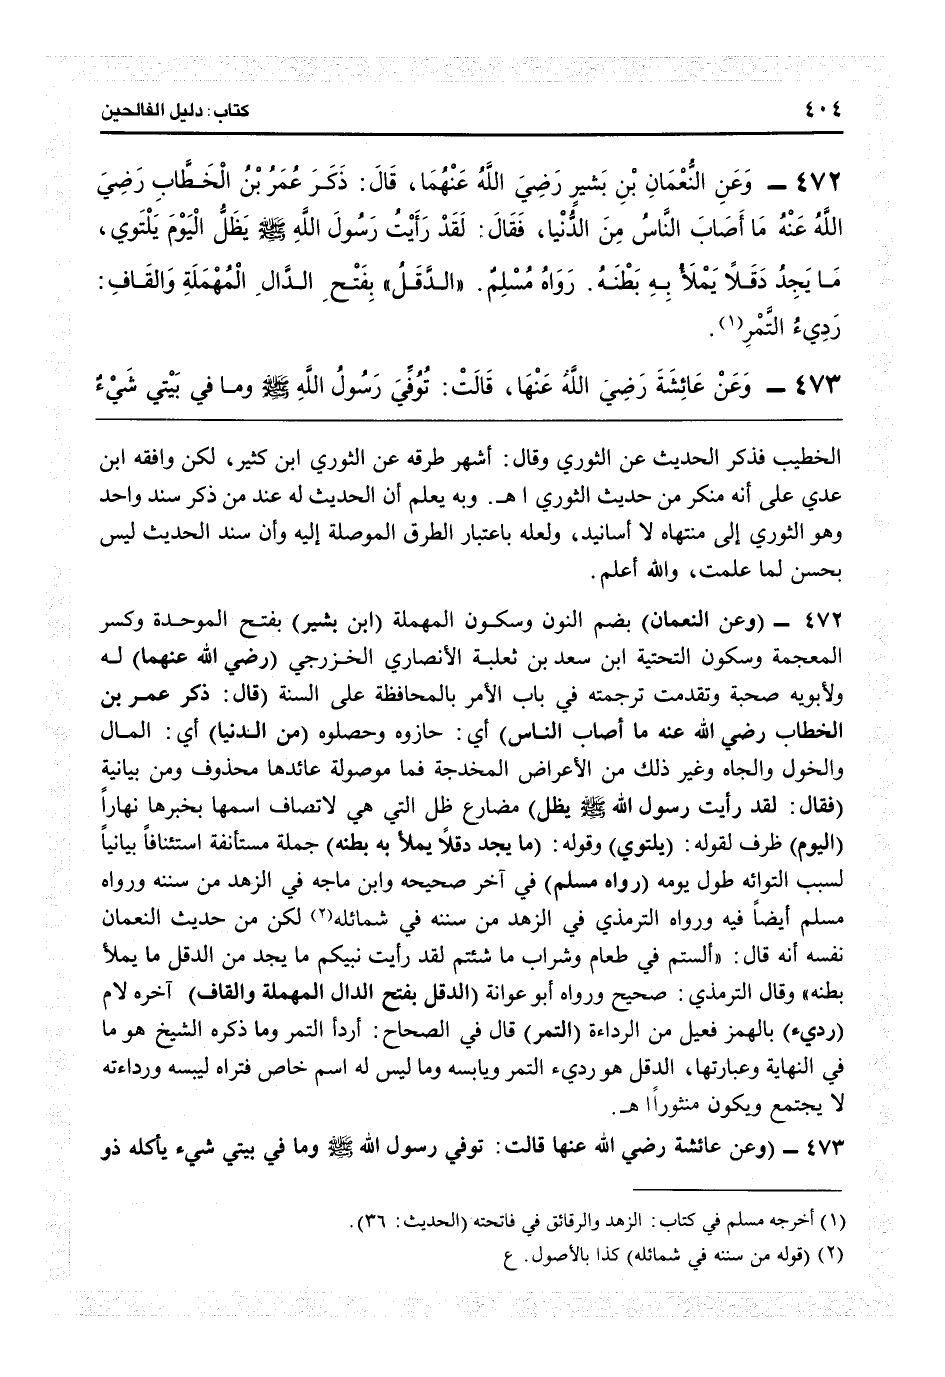 ٤٠٤
كتاب: دليل الفالحين
٤٧٢ ـ وَعَنِ النُّعْمَانِ بْنِ بَشيرٍ رَضِيَ اللَّهُ عَنْهُمَا، قَالَ: ذَكَرَ عُمَرُ بْنُ الْخَطَّابِ رَضِيَ
اللَّهُ عَنْهُ مَا أَصَابَ النَّاسُ مِنَ الدُّنْيا، فَقَالَ: لَقَدْ رَأَيْتُ رَسُولَ اللَّهِ ﷺ يَظَلُّ الْيَوْمَ يَلْتَوي،
مَا يَجِدُ دَقَلاً يَمْلَأُ بِهِ بَطْنَهُ. رَوَاهُ مُسْلِمٌ. «الدَّقَلُ» بِفَتْحِ الدَّالِ الْمُهْمَلَةِ وَالْقَافِ:
رَدِيءُ التَّمْرِ(١).
٤٧٣ ـ وَعَنْ عَائِشَةَ رَضِيَ اللَّهُ عَنْهَا، قَالَتْ: تُوُفِّيَ رَسُولُ اللَّهِ ﷺ وما في بَيْتي شَيْءٌ
الخطيب فذكر الحديث عن الثوري وقال: أشهر طرقه عن الثوري ابن كثير، لكن وافقه ابن
عدي على أنه منكر من حديث الثوري ا هـ. وبه يعلم أن الحديث له عند من ذكر سند واحد
وهو الثوري إلى منتهاه لا أسانيد، ولعله باعتبار الطرق الموصلة إليه وأن سند الحديث ليس
بحسن لما علمت، والله أعلم.
٤٧٢ ـ (وعن النعمان) بضم النون وسكون المهملة (ابن بشير) بفتح الموحدة وكسر
المعجمة وسكون التحتية ابن سعد بن ثعلبة الأنصاري الخزرجي (رضي الله عنهما) له
ولأبويه صحبة وتقدمت ترجمته في باب الأمر بالمحافظة على السنة (قال: ذكر عمر بن
الخطاب رضي الله عنه ما أصاب الناس) أي: حازوه وحصلوه (من الدنيا) أي: المال
والخول والجاه وغير ذلك من الأعراض المخدجة فما موصولة عائدها محذوف ومن بيانية
(فقال: لقد رأيت رسول الله ﷺ يظل) مضارع ظل التي هي لاتصاف اسمها بخبرها نهاراً
(اليوم) ظرف لقوله: (يلتوي) وقوله: (ما يجد دقلاً يملأ به بطنه) جملة مستأنفة استئنافاً بيانياً
لسبب التوائه طول يومه (رواه مسلم) في آخر صحيحه وابن ماجه في الزهد من سننه ورواه
مسلم أيضاً فيه ورواه الترمذي في الزهد من سننه في شمائله(٢) لكن من حديث النعمان
نفسه أنه قال: «ألستم في طعام وشراب ما شئتم لقد رأيت نبيكم ما يجد من الدقل ما يملأ
بطنه» وقال الترمذي: صحيح ورواه أبو عوانة (الدقل بفتح الدال المهملة والقاف) آخره لام
(رديء) بالهمز فعيل من الرداءة (التمر) قال في الصحاح: أردأ التمر وما ذكره الشيخ هو ما
في النهاية وعبارتها، الدقل هو رديء التمر ويابسه وما ليس له اسم خاص فتراه ليبسه ورداءته
لا يجتمع ويكون منثوراً ا هـ.
٤٧٣ ـ (وعن عائشة رضي الله عنها قالت: توفي رسول الله ﷺ وما في بيتي شيء يأكله ذو
(١) أخرجه مسلم في كتاب: الزهد والرقائق في فاتحته (الحديث: ٣٦).
(٢) (قوله من سننه في شمائله) كذا بالأصول. ع